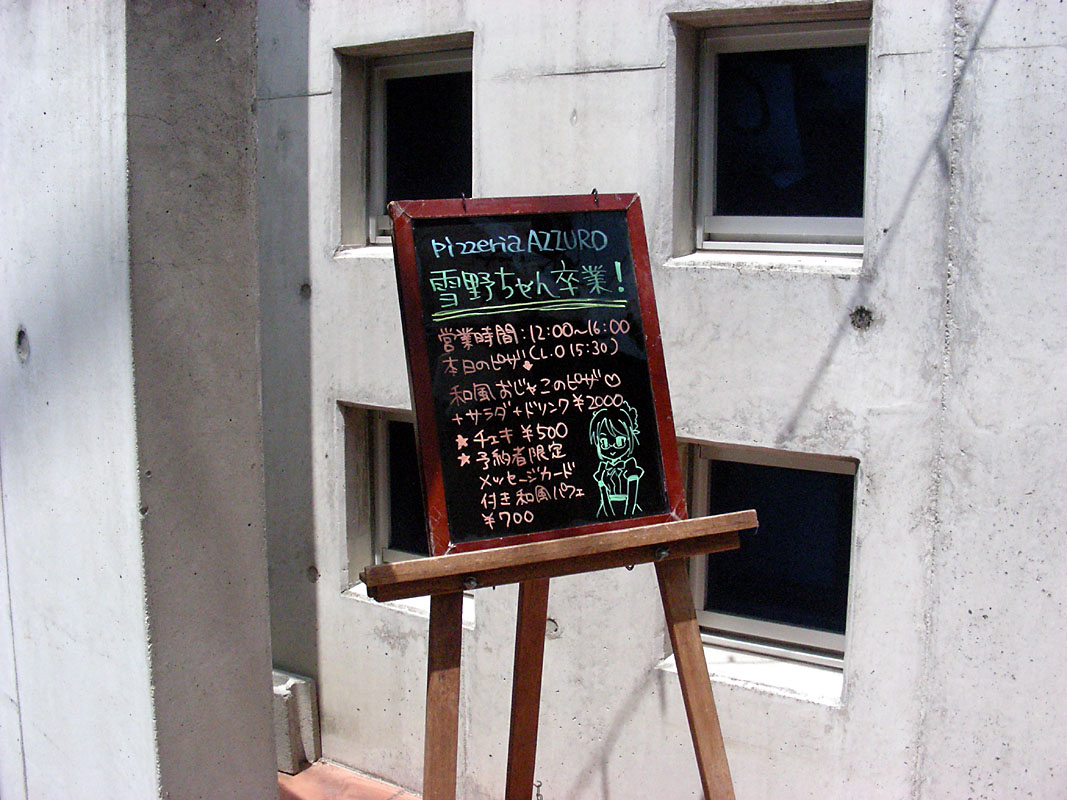 Pizzeria AZZURO
雪野ちゃん卒業!
営業時間:12:00~16:00
本日のピザ(L.O 15:30)
和風おじゃこのピザ♡
+サラダ+ドリンク ¥2000
★チェキ ¥500
★予約者限定
メッセージカード
付き和風パフェ
¥700